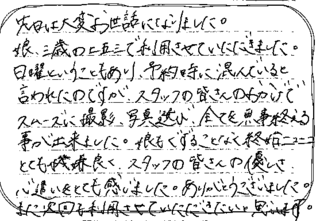 先日は大変お世話になりました。
娘、三歳の七五三で利用させていただきました。
日曜ということもあり、予約時に混んでいると
言われたのですが、スタッフの皆さんのおかげで
スムーズに撮影、写真選び、全てを無事終える
事が出来ました。娘もぐずることなく終始ニコニコ
とても機嫌良く、スタッフの皆さんの優しさ
心遣いをとても感じました。ありがとうございました。
また次回も利用させていただきたいと思います。